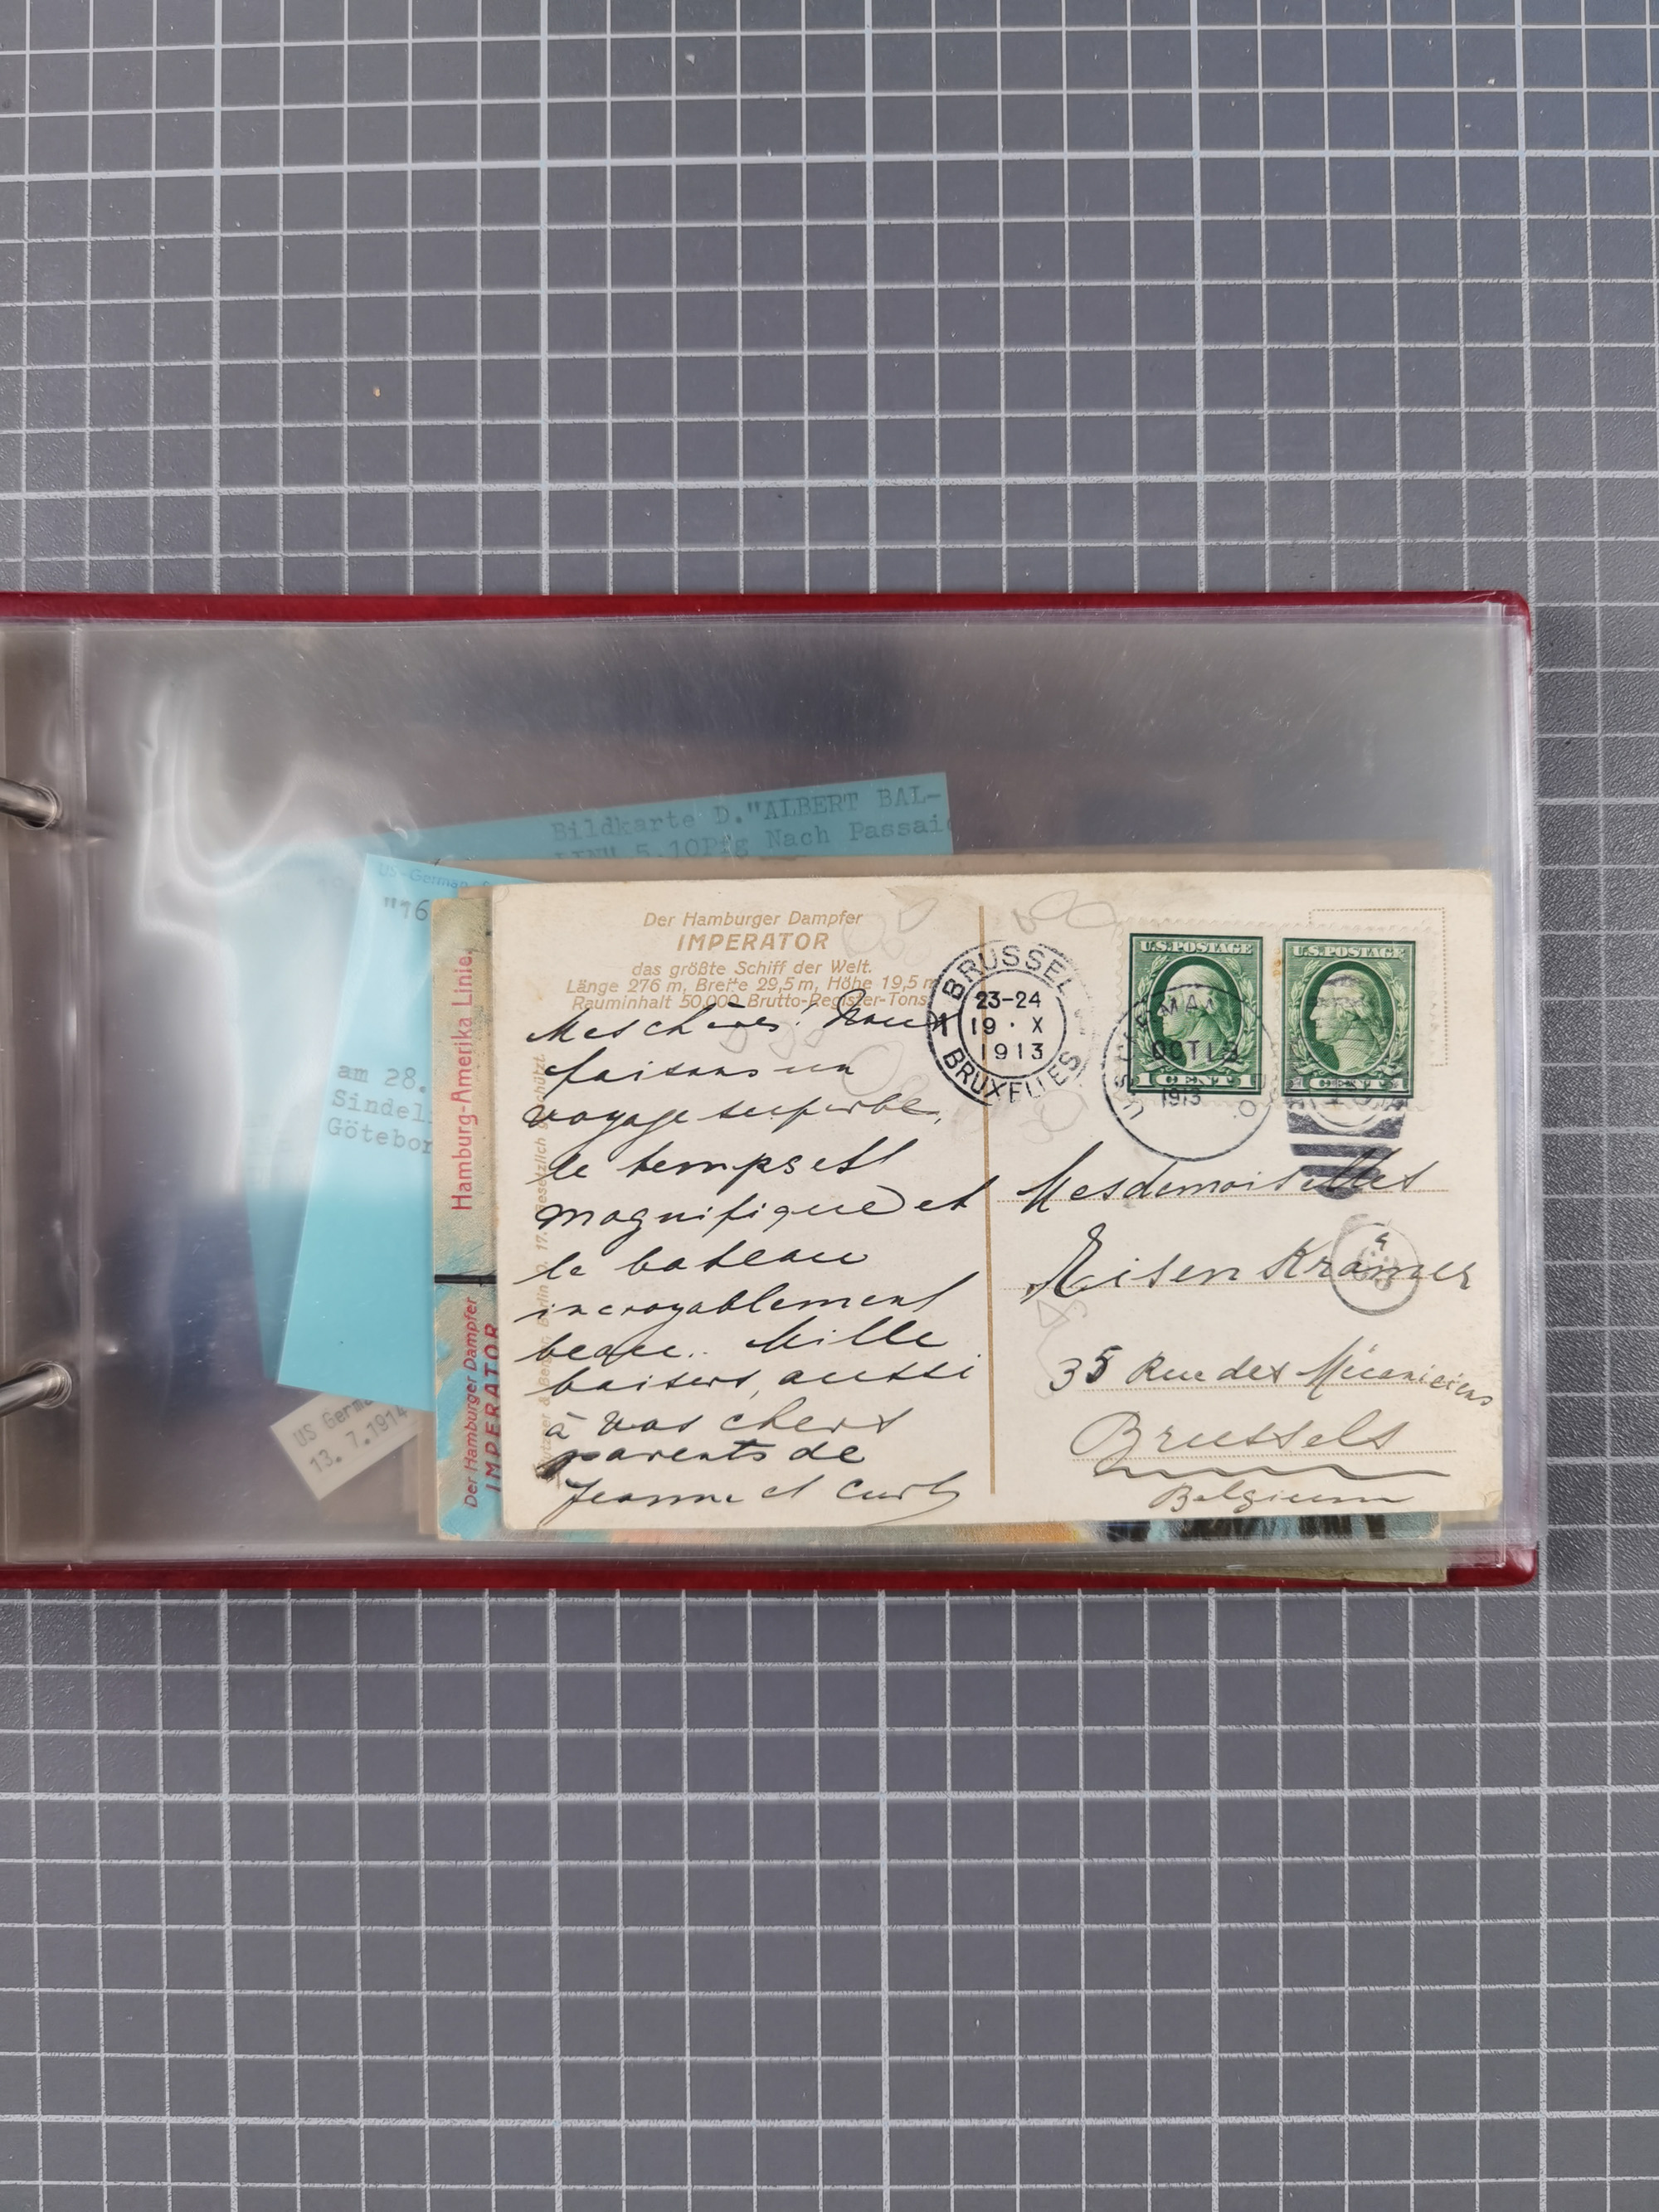 Bildkarte D."ALBERT BAL-
5.10Pfg Nach Passaic
US-German
"16
am 28.
Sindel
Götebor
US Germa
13. 7.1914
Hamburg-Amerika Linie,
Der Hamburger Dampfer
IMPERATOR
Der Hamburger Dampfer
IMPERATOR
das größte Schiff der Welt.
Länge 276 m, Breite 29,5 m, Höhe 19,5 m
Rauminhalt 50,000 Brutto-Register-Tons
Mes chères! Nous
faisons un
voyage superbe,
le temps est
magnifique et
le bateau
incroyablement
beau.. Mille
baisers, aussi
à vos chers
parents de
Jeanne et Curt
BRUSSEL
23-24
19 · X
1913
1 BRUXELLES
U.S. MA
OCT 13
1913
U.S.POSTAGE
1 CENT 1
U.S.POSTAGE
CENT
Mesdemoiselles
Eisenkramer
35 Rue des Mécaniciens
Brussels
Belgium